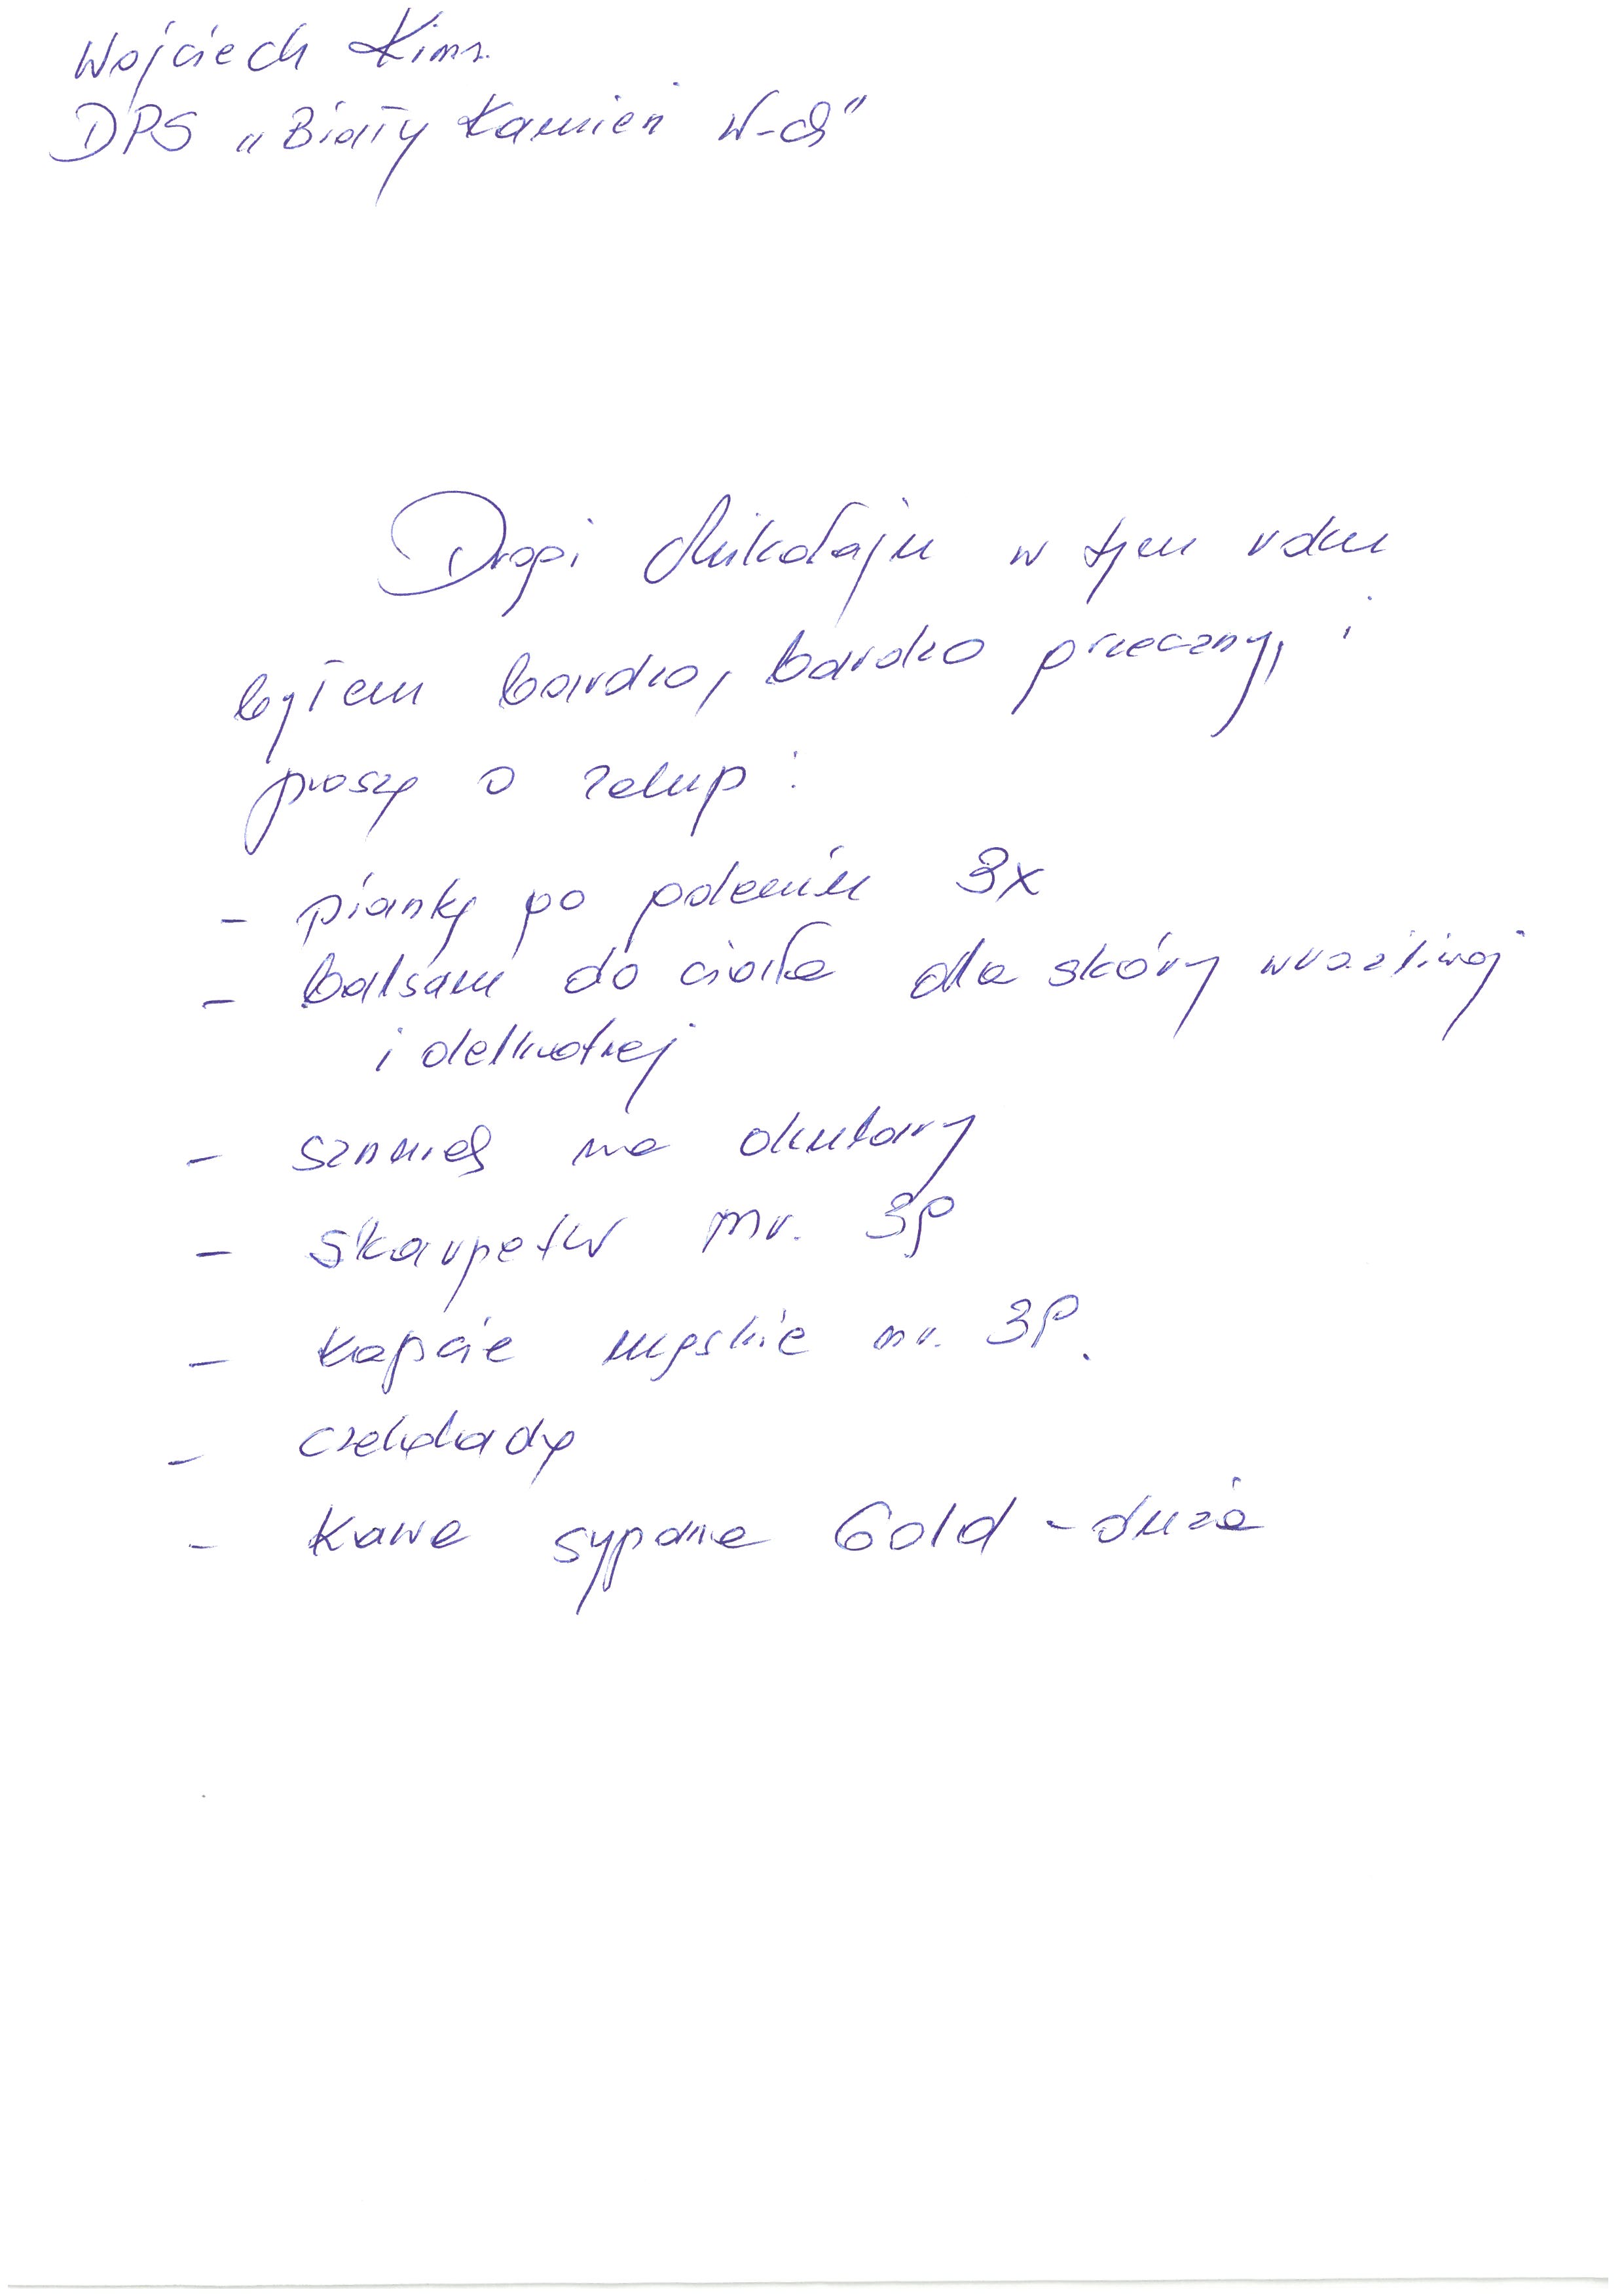 Wojciech Kims.
DPS „Biały Kamień W-ch"
Drogi Mikołaju w tym roku
byłem bardzo, bardzo grzeczny, i
proszę o zakup:
- piankę po goleniu 3x
- balsam do ciała dla skóry wrażliwej
i delikatnej
- sznurek na okulary
- skarpetki nr. 39
- kapcie męskie nr. 39.
- czekoladę
- kawa sypana Gold - duża